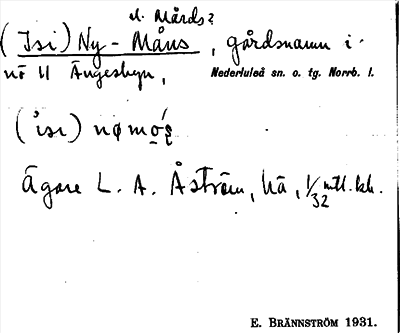 el. Mårds?
(Isi) Ny-Måns, gårdsnamn i
nö 11 Ängesbyn,
Nederluleå sn. o. tg. Norrb. l.
Ägare L. A. Åström, hä, 1/32 mtl.
E. BRÄNNSTRÖM 1931.